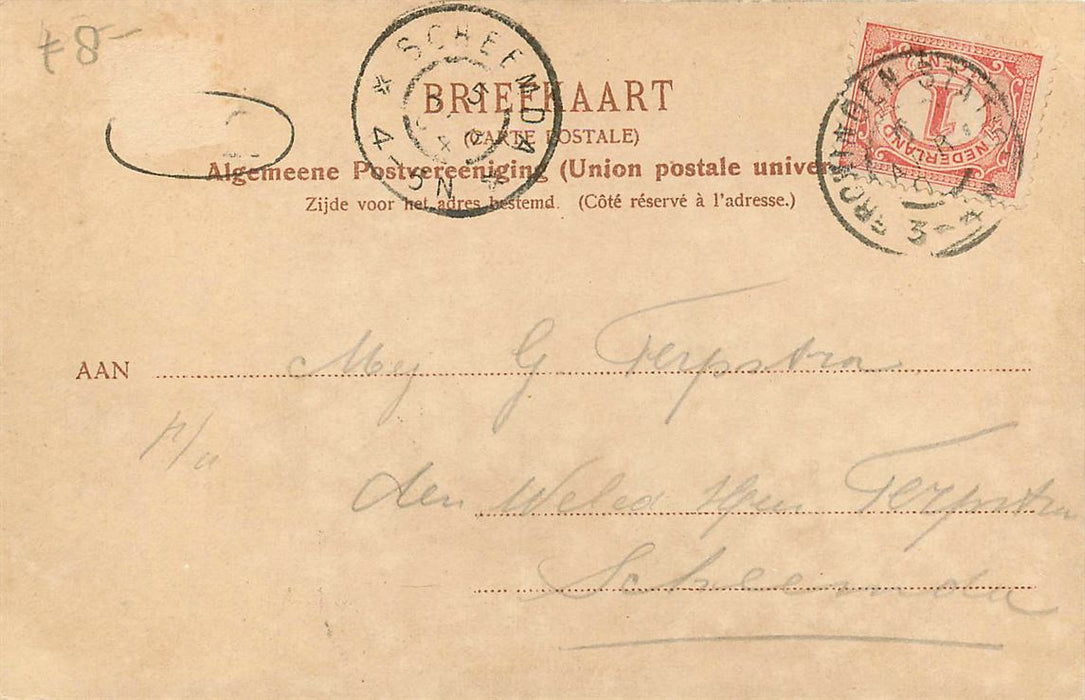 8-
SCHEEMDA
4-5 N
BRIEFKAART
(CARTE POSTALE)
Algemeene Postvereeniging (Union postale univer
Zijde voor het adres bestemd. (Côté réservé à l'adresse.)
NEDERLAND
1
CENT
GRONINGEN-STAT
AAN Mej G Terpstra
p/a
den Weled Heer Terpstra
Scheemda